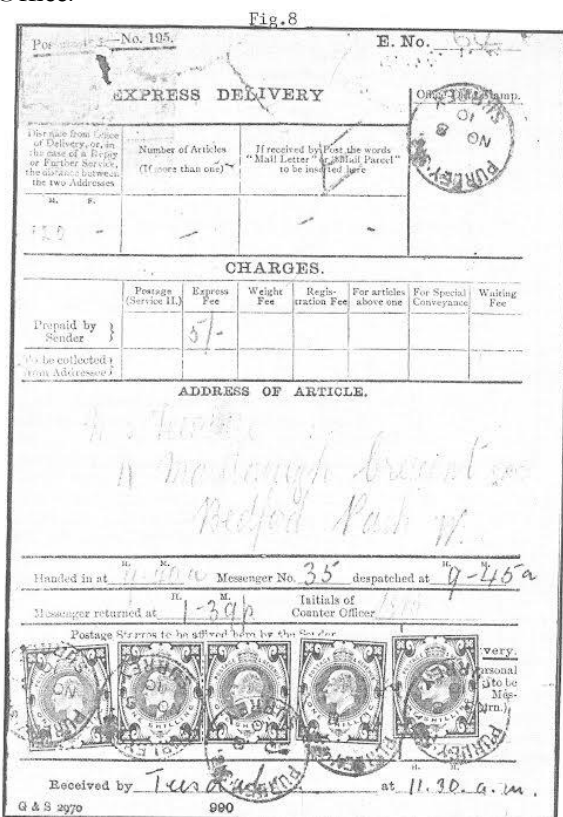 Office.
Fig.8
No. 195.
E. No.
EXPRESS DELIVERY
Office Date Stamp.
PURLEY SURREY
NO 8
10
Distance from Office
of Delivery, or, in
the case of a Reply
or Further Service,
the distance between
the two Addresses
Number of Articles
(If more than one)
If received by Post the words
"Mail Letter" or "Mail Parcel"
to be inserted here
M. F.
CHARGES.
Postage
(Service II.)
Express
Fee
Weight
Fee
Regis-
tration Fee
For articles
above one
For Special
Conveyance
Waiting
Fee
Prepaid by
Sender
5/-
To be collected
from Addressee
ADDRESS OF ARTICLE.
Bedford Park W.
H. M. H. M.
Handed in at 9-40 a Messenger No. 35 despatched at 9-45 a
H. M.
Messenger returned at 1-39 p Initials of
Counter Officer
Postage Stamps to be affixed here by the Sender
very.
ersonal
to be
Mes-
rn.)
ONE SHILLING
ONE SHILLING
ONE SHILLING
ONE SHILLING
ONE SHILLING
H. M.
Received by at 11.30. a.m.
G & S 2970 990